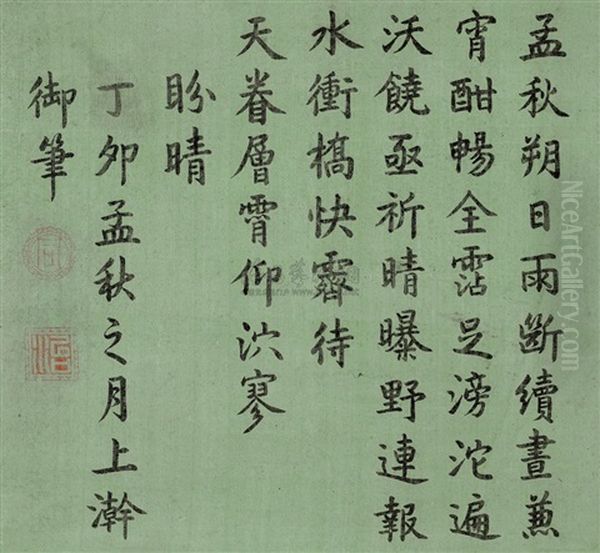 孟秋朔日雨斷續晝兼
宵酣暢全霑足滂沱遍
沃饒亟祈晴曝野連報
水衝橋快霽待
天眷層霄仰泬寥
盼晴
丁卯孟秋之月上澣
御筆
同
治
NiceArtGallery.com